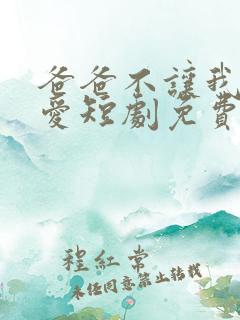 爸爸不讓我
愛短劇免費
程紅常
未經同意禁止轉載